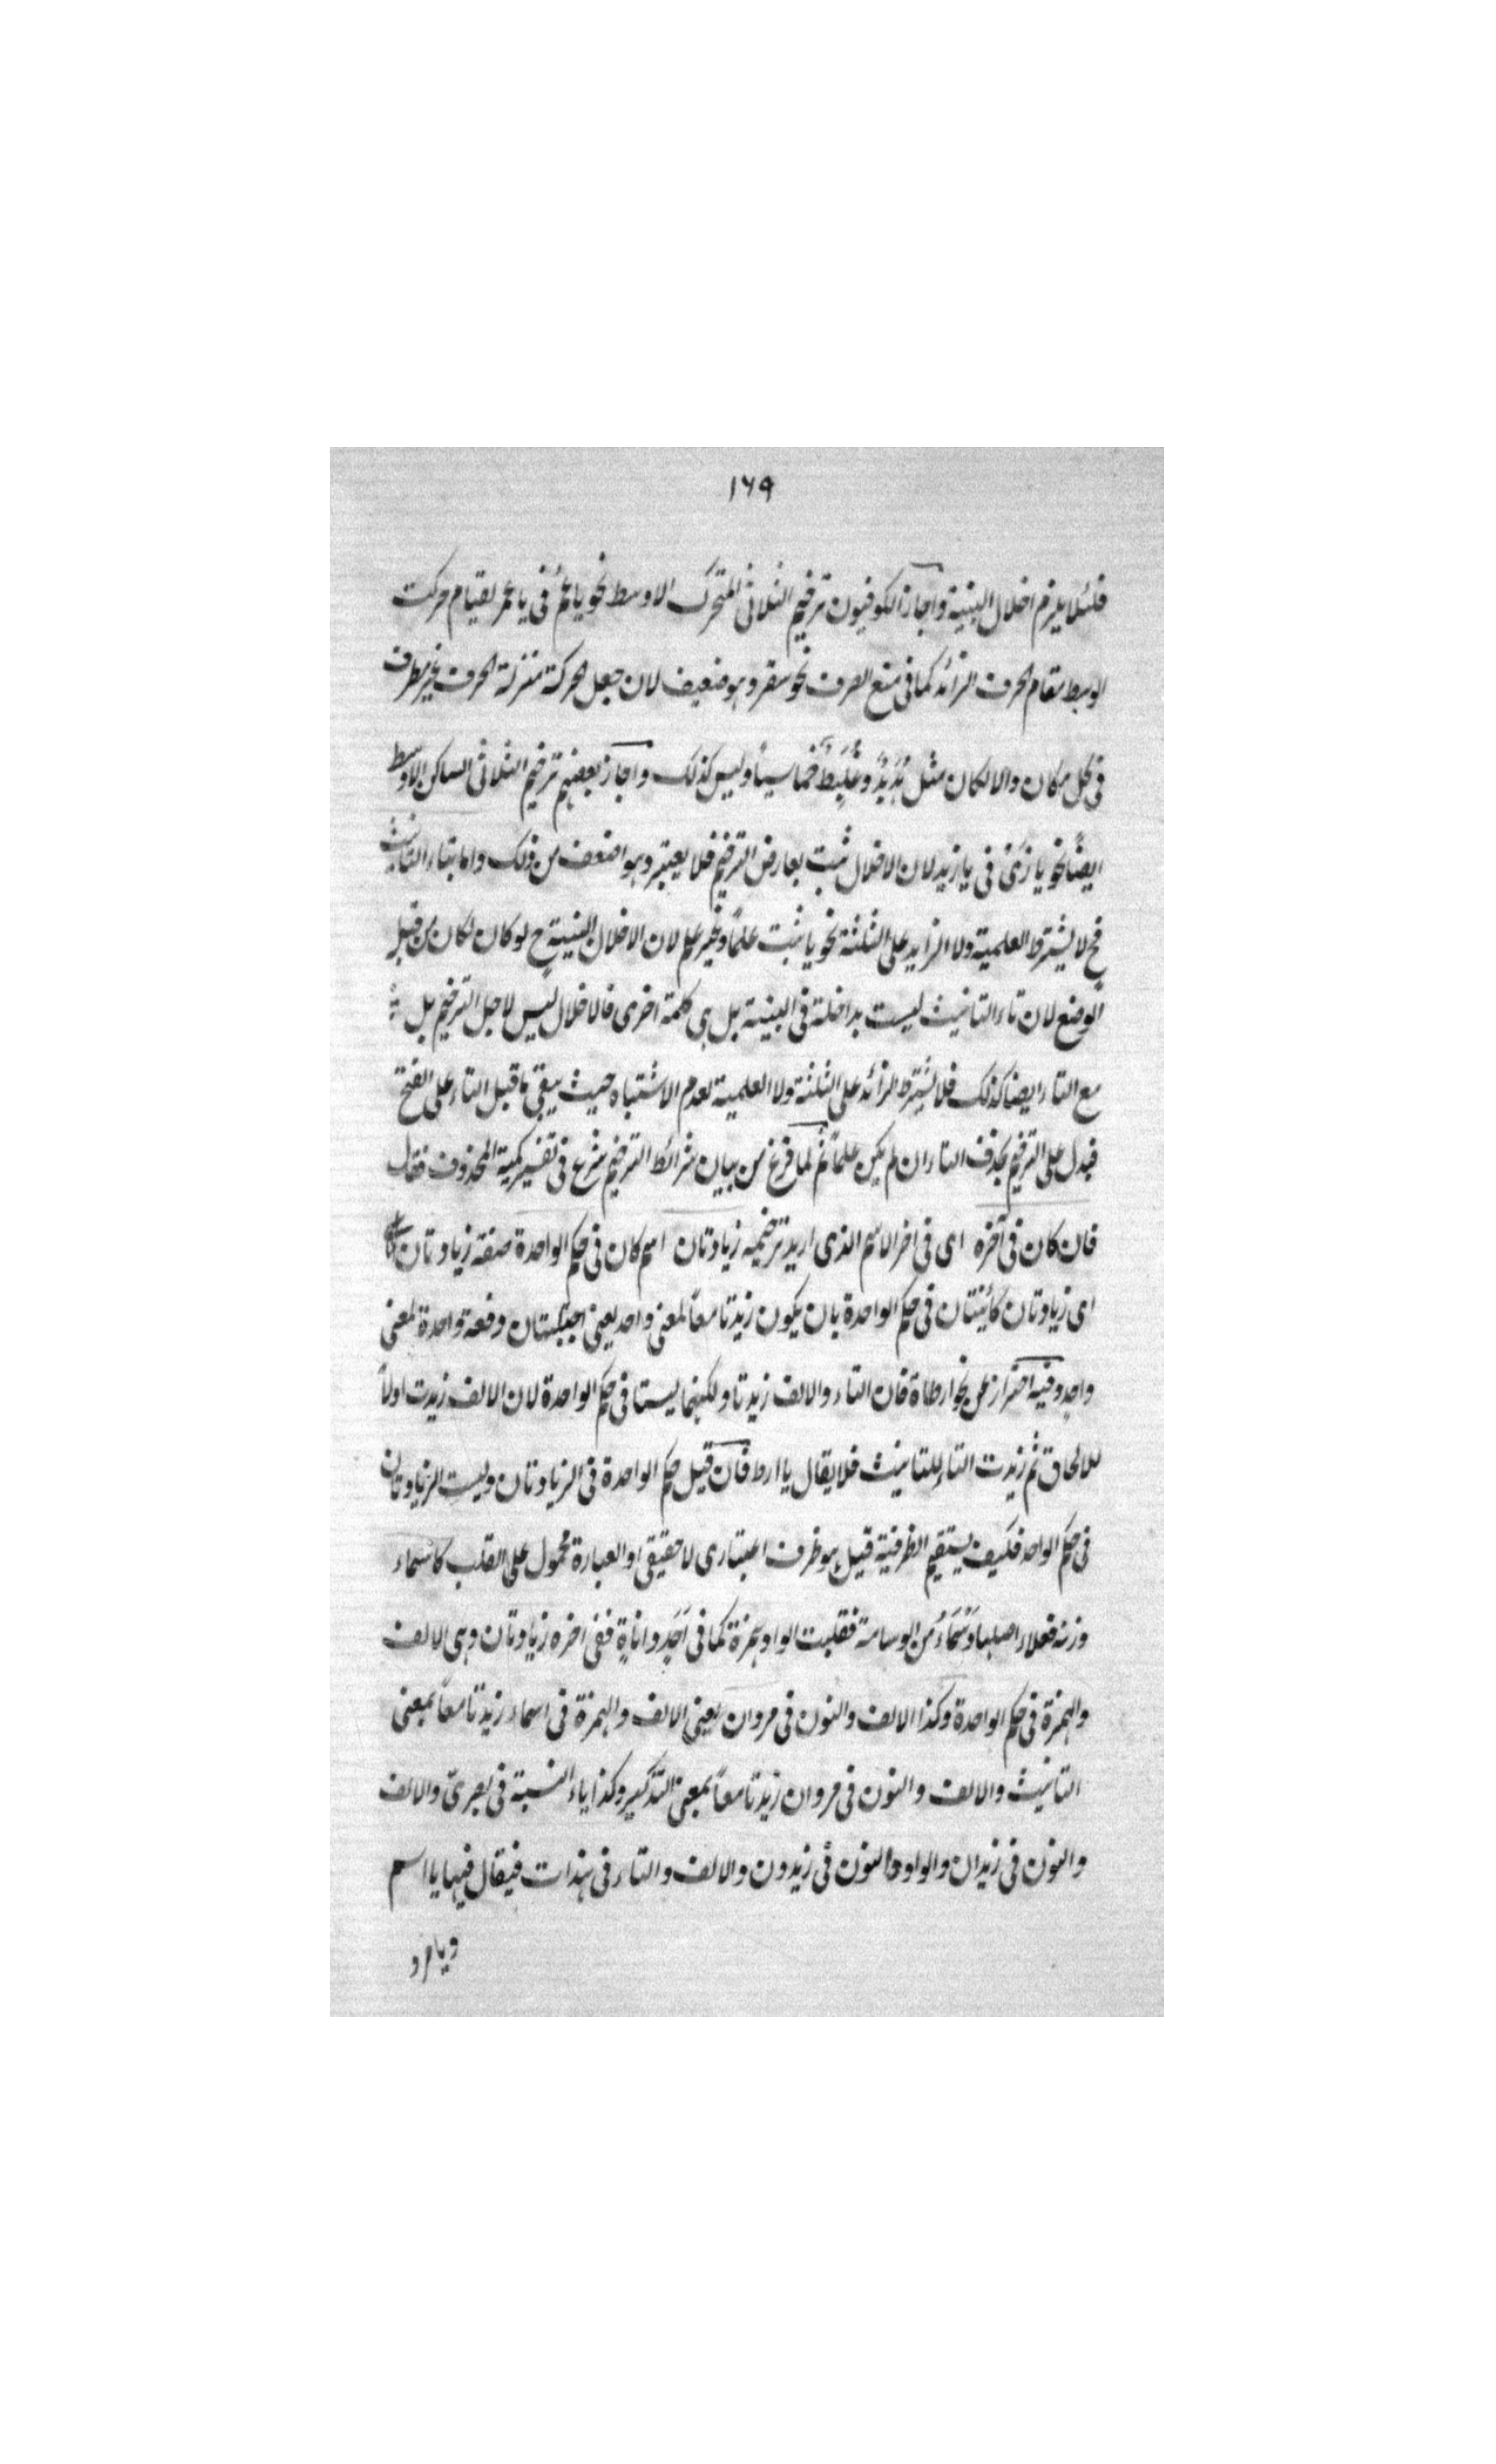 ١٦٩
فلئلا يلزم اخلال البنية واجاز الكوفيون ترخيم الثلاثى المتحرك الاوسط نحو يا عُمُ فى يا عمر لقيام حركت
الوسط مقام الحرف الزائد كما فى منع الصرف نحو سقر وهو ضعيف لان جعل الحركة منزلة الحرف غير مطرف
فى كل مكان والا لكان مثل هُدَبِدٌ وعُلَبِطٌ خماسيا وليس كذلك واجاز بعضهم ترخيم الثلاثى الساكن الاوسط
ايضًا نحو يا زَىْ فى يا زيد لان الاخلال ثبت بعارض الترخيم فلا يعتبر وهو اضعف من ذلك واما بتاء التانيث
فح لا يشترط العلمية ولا الزايد على الثلثة نحو يا ثبت علمًا وغير علم لان الاخلال البنية ح لو كان لكان من قبل
الوضع لان تاء التانيث ليست بداخلة فى البنية بل هى كلمة اخرى فالاخلال ليس لاجل الترخيم بل
مع التاء ايضا كذلك فلا يشترط الزائد على الثلثة ولا العلمية لعدم الاشتباه حيث يبقى ما قبل التاء على الفتح
فيدل على الترخيم بحذف التاء ان لم يكن علمًا ثم لما فرغ من بيان شرائط الترخيم شرع فى تفسير كمية المحذوف فقال
فان كان فى آخره اى فى اخر الاسم الذى اريد ترخيمه زيادتان اسم كان فى حكم الواحدة صفة زيادتان
اى زيادتان كائنتان فى حكم الواحدة بان يكون زيدتا معًا لمعنى واحد يعنى دفعة واحدة لمعنى
واحد وفيه احتراز عن نحو ارطاة فان التاء والالف زيدتا ولكنهما ليستا فى حكم الواحدة لان الالف زيدت اولًا
للالحاق ثم زيدت التاء للتانيث فلا يقال يا ارط فان قيل حكم الواحدة فى الزيادتان وليست الزيادتان
فى حكم الواحد فكيف يستقيم الظرفية قيل هو ظرف اعتبارى لا حقيقى او العبارة محمول على القلب كاسماء
وزنه فعلاء اصلها وَسْمَاءُ من الوسامة فقلبت الواو همزة كما فى اَحَدٍ واناةٍ ففى اخره زيادتان وهى الالف
والهمزة فى حكم الواحدة وكذا الالف والنون فى مروان يعنى الالف والهمزة فى اسماء زيدتا معًا بمعنى
التانيث والالف والنون فى مروان زيدتا معًا بمعنى التذكير وكذا ياء النسبة فى بصرىّ والالف
والنون فى زيدان والواو والنون فى زيدون والالف والتاء فى هندات فيقال فيها يا اسم
ويا مرو